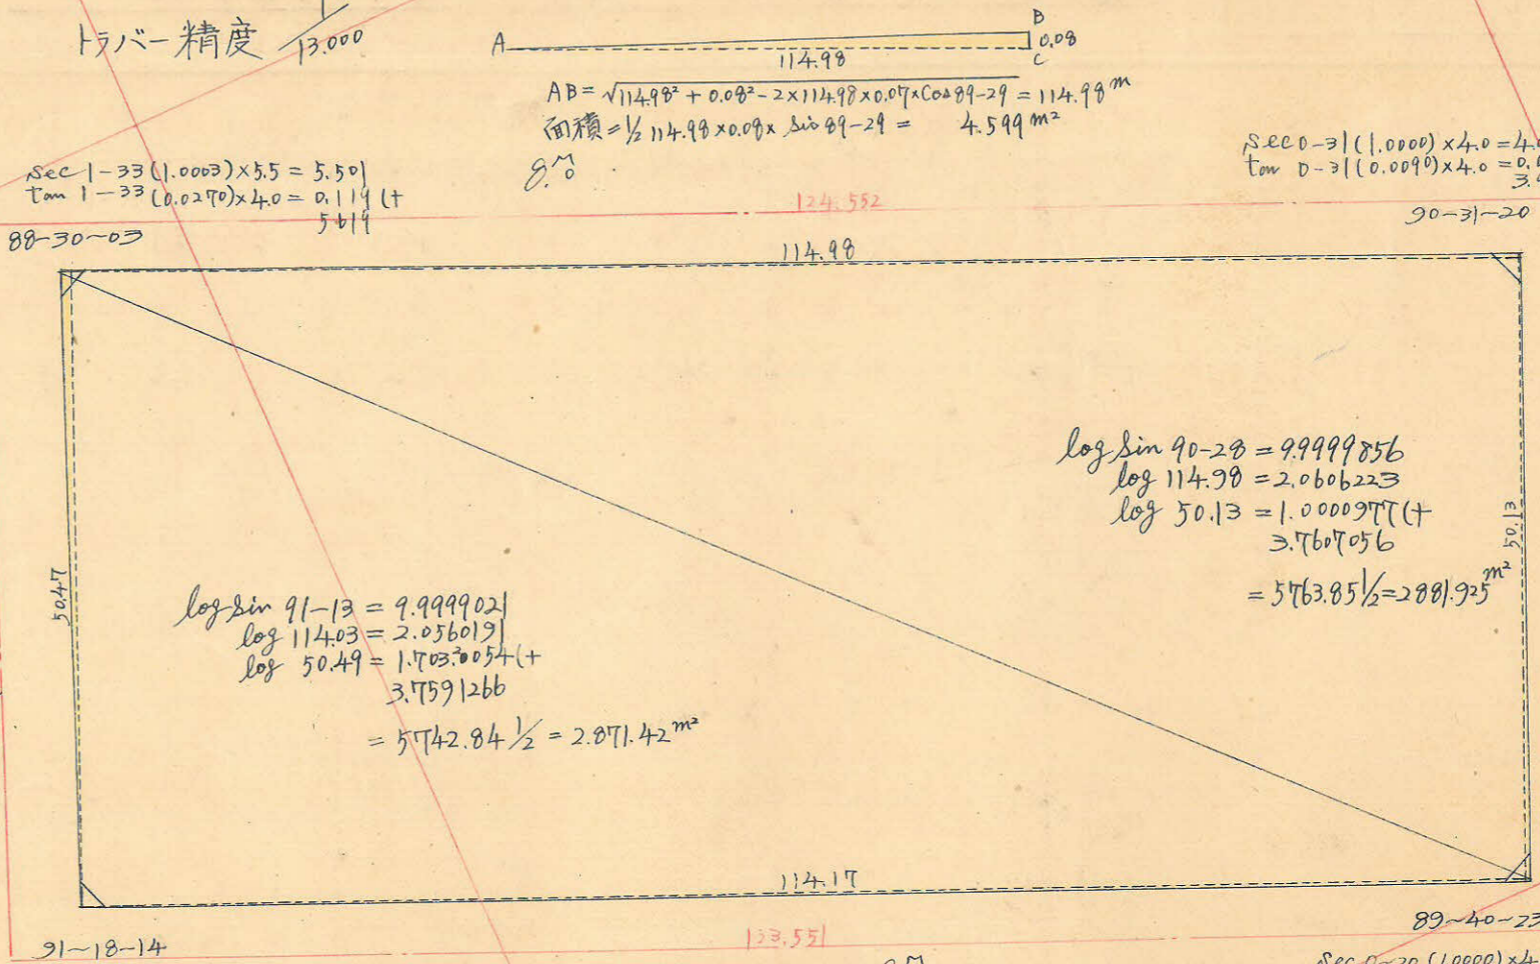 トラバー精度 1/13.000
A
B
0.08
C
114.98
AB=√114.98²+0.08²-2×114.98×0.07×Cos89-29 = 114.98 m
面積=1/2 114.98×0.08×sin 89-29 = 4.599 m²
8.0 M
sec 1-33 (1.0003)×5.5 = 5.501
tan 1-33 (0.0270)×4.0 = 0.119 (+
5619
sec 0-31 (1.0000)×4.0 = 4.
tan 0-31 (0.0090)×4.0 = 0.
3.
124.552
88-30-03
90-31-20
114.98
log sin 90-28 = 9.9999856
log 114.98 = 2.0606223
log 50.13 = 1.0000977 (+
3.7607056
= 5763.85 1/2 = 2881.925 m²
50.13
50.47
log sin 91-13 = 9.9999021
log 114.03 = 2.0560191
log 50.49 = 1.7032054 (+
3.7591266
= 5742.84 1/2 = 2.871.42 m²
114.17
91-18-14
133.551
89-40-23
sec 0-20 (1.0000)×4